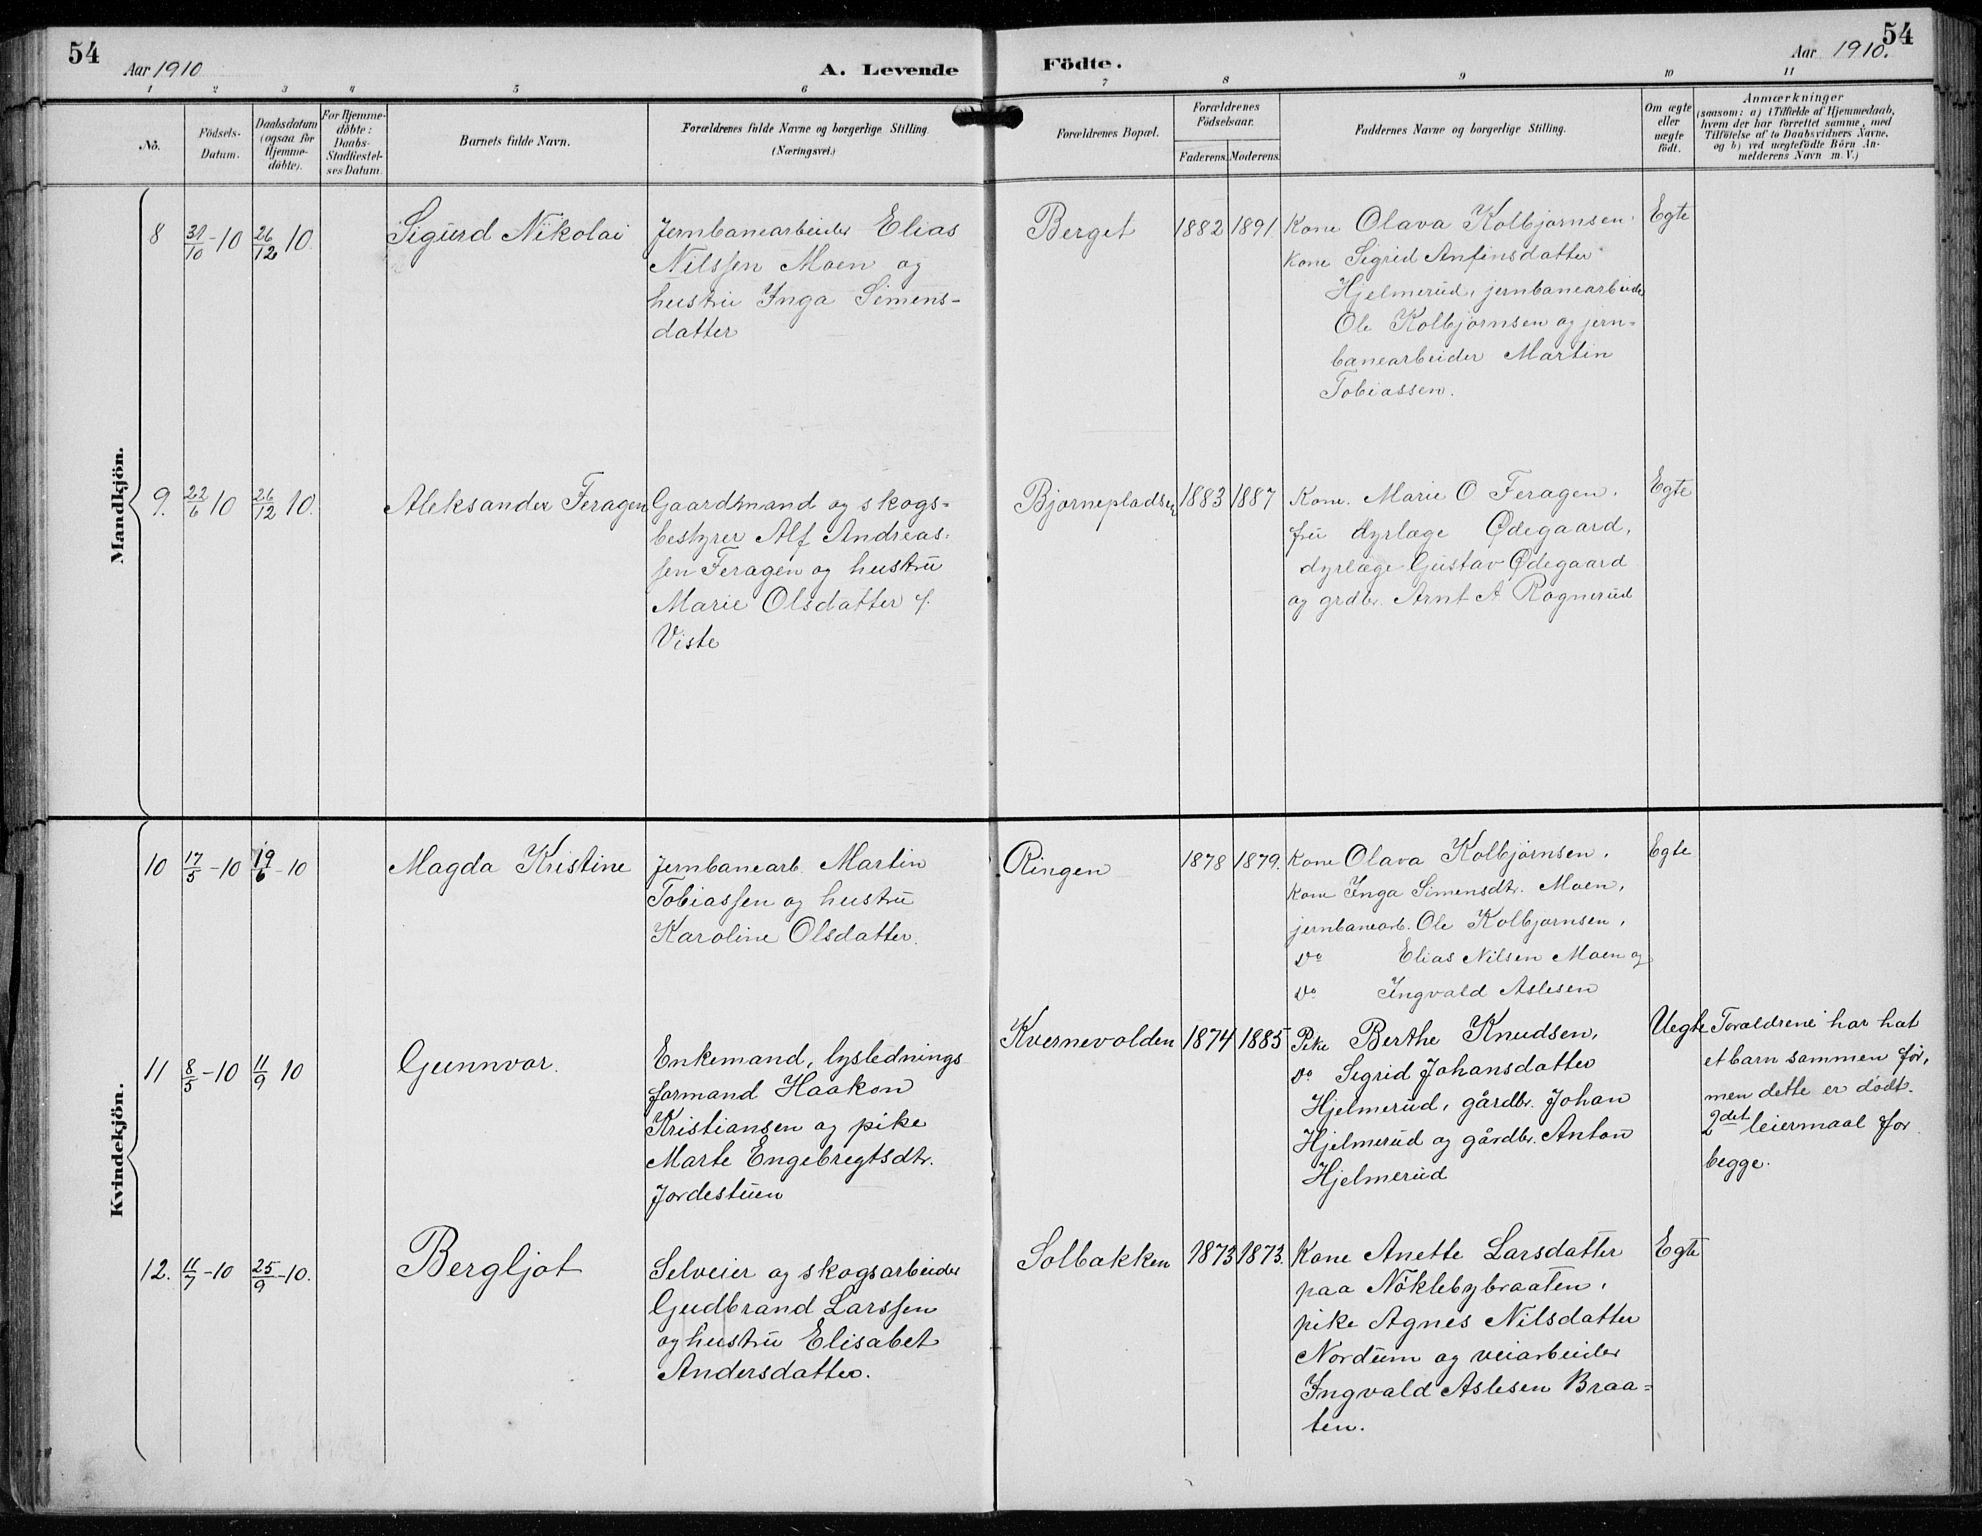 54
Aar 1910
A. Levende
Födte.
Aar 1910.
54
1 2 3 4 5 6 7 8 9 10 11
No.
Födsels-
Datum.
Daabsdatum
(ogsaa for
Hjemme-
døbte).
For Hjemme-
døbte:
Daabs-
Stadfæstel-
ses Datum.
Barnets fulde Navn.
Forældrenes fulde Navne og borgerlige Stilling.
(Næringsvei.)
Forældrenes Bopæl.
Forældrenes
Födselsaar.
Faderens. Moderens.
Faddernes Navne og borgerlige Stilling.
Om ægte
eller
uægte
født.
Anmærkninger
(saasom: a) i Tilfælde af Hjemmedaab,
hvem der har forrettet samme, med
Tilføielse af to Daabsvidners Navne,
og b) ved uægtefödte Börn An-
melderens Navn m. V.)
Mandkjön.
8
31/10-10
26/12 10.
Sigurd Nikolai
Jernbanearbeider Elias
Nilssen Moen og
hustru Inga Simens-
datter
Berget
1882
1891.
Kone Olava Kolbjørnsen.
Kone Sigrid Anfinsdatter
Hjelmerud, jernbanearbeider
Ole Kolbjørnsen og jern-
banearbeider Martin
Tobiassen.
Egte
9.
22/6 10
26/12 10.
Aleksander Feragen
Gaardmand og skogs-
bestyrer Alf Andreas-
sen Feragen og hustru
Marie Olsdatter f.
Viste
Bjørnepladsen
1883
1887
Kone. Marie O Feragen.
fru dyrlæge Ødegaard,
dyrlæge Gustav Ødegaard
og grdbr. Arnt A Rognerud
Egte
Kvindekjön.
10
17/5-10
19/6-10
Magda Kristine
Jernbanearb. Martin
Tobiassen og hustru
Karoline Olsdatter.
Ringen
1878
1879.
Kone Olava Kolbjørnsen.
Kone Inga Simensdtr. Moen,
jernbanearb. Ole Kolbjørnsen,
Do Elias Nilsen Moen og
Do Ingvald Aslesen
Egte
11
8/5-10
11/9 10
Gunnvor.
Enkemand, lyslednings
formand Haakon
Kristiansen og pike
Marte Engebregtsdtr.
Jordestuen
Kvernevolden
1874
1885
Pike Berthe Knudsen,
Do Sigrid Johansdatter
Hjelmerud, gårdbr. Johan
Hjelmerud og gårdbr. Anton
Hjelmerud
Uegte
Foraldrene har hat
et barn sammen før,
men dette er dødt.
2det leiermaal for
begge.
12.
11/7-10
25/9-10.
Bergljot
Selveier og skogsarbeider
Gudbrand Larssen
og hustru Elisabet
Andersdatter.
Solbakken
1873
1873.
Kone Anette Larsdatter
paa Nøklebybraaten,
pike Agnes Nilsdatter
Nordum og veiarbeider
Ingvald Aslesen Braa-
ten.
Egte